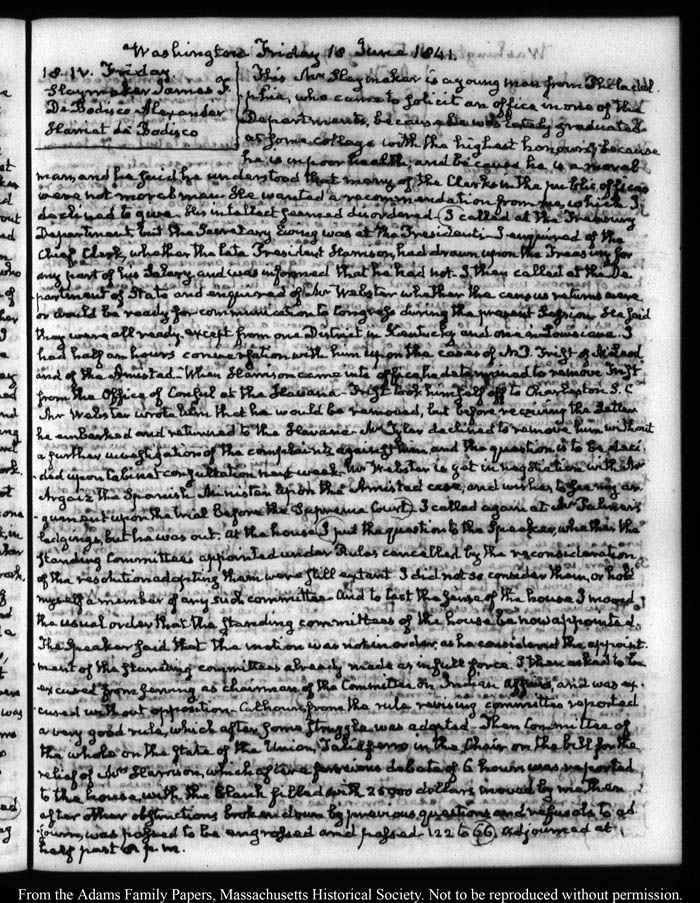 Washington Friday 18 June 1841.
18. IV. Friday.
Slaymaker James F.
De Bodisco Alexander
Harriet de Bodisco
This Mr Slaymaker is a young man from Philadel
phia, who came to solicit an office in one of the
Departments, because he was lately graduated
at some college with the highest honours, because
he is in poor health, and because he is a moral
man, and he said he understood that many of the Clerks in the public offices
were not moral men. He wanted a recommendation from me, which I
declined to give. His intellect seemed disordered. I called at the Treasury
Department but the Secretary Ewing was at the President's. I enquired of the
Chief Clerk, whether the late President Harrison had drawn upon the Treasury for
any part of his Salary, and was informed that he had not. I then called at the De
partment of State and enquired of Mr Webster whether the census returns were
or would be ready for communication to Congress during the present Session. He said
they were all ready, except from one District in Kentucky and one in Louisiana. I
had half an hours conversation with him upon the cases of N. Trist of McLeod
and of the Amistad. When Harrison came into office he determined to remove Trist
from the Office of Consul at the Havana. Trist took himself off to Charleston S.C
Mr Webster wrote him that he would be removed, but before receiving the Letter
he embarked and returned to the Havana. Mr Tyler declined to remove him without
a further investigation of the complaints against him, and the question is to be deci
ded upon Cabinet consultation next week. Mr Webster is yet in negotiation with Mr
Argaiz the Spanish Minister upon the Amistad case, and wishes to see my ar
gument upon the trial before the Supreme Court. I called again at Mr Palmer's
lodgings, but he was out. At the house I put the question to the Speaker, whether the
Standing Committees appointed under Rules cancelled by the reconsideration
of the resolution adopting them were still extant. I did not so consider them, or hold
myself a member of any such committee. And to test the sense of the house I moved
the usual order that the standing committees of the house be now appointed.
The Speaker said that the motion was not in order, as he considered the appoint
ment of the Standing committees already made as in full force. I then asked to be
excused from serving as chairman of the Committee on Indian Affairs, and was ex
cused without opposition. Calhoun from the rule revising committee reported
a very good rule, which after some struggle was adopted. Then Committee of
the whole on the state of the Union, Taliaferro in the Chair on the bill for the
relief of Mrs Harrison, which after a furious debate of 6 hours was reported
to the house, with the blank filled with 25000 dollars moved by me. Then
after other obstructions broken down by previous questions and refusals to ad
journ, was passed to be engrossed and passed 122 to 66 Adjourned at
half past 6 p.m.
From the Adams Family Papers, Massachusetts Historical Society. Not to be reproduced without permission.